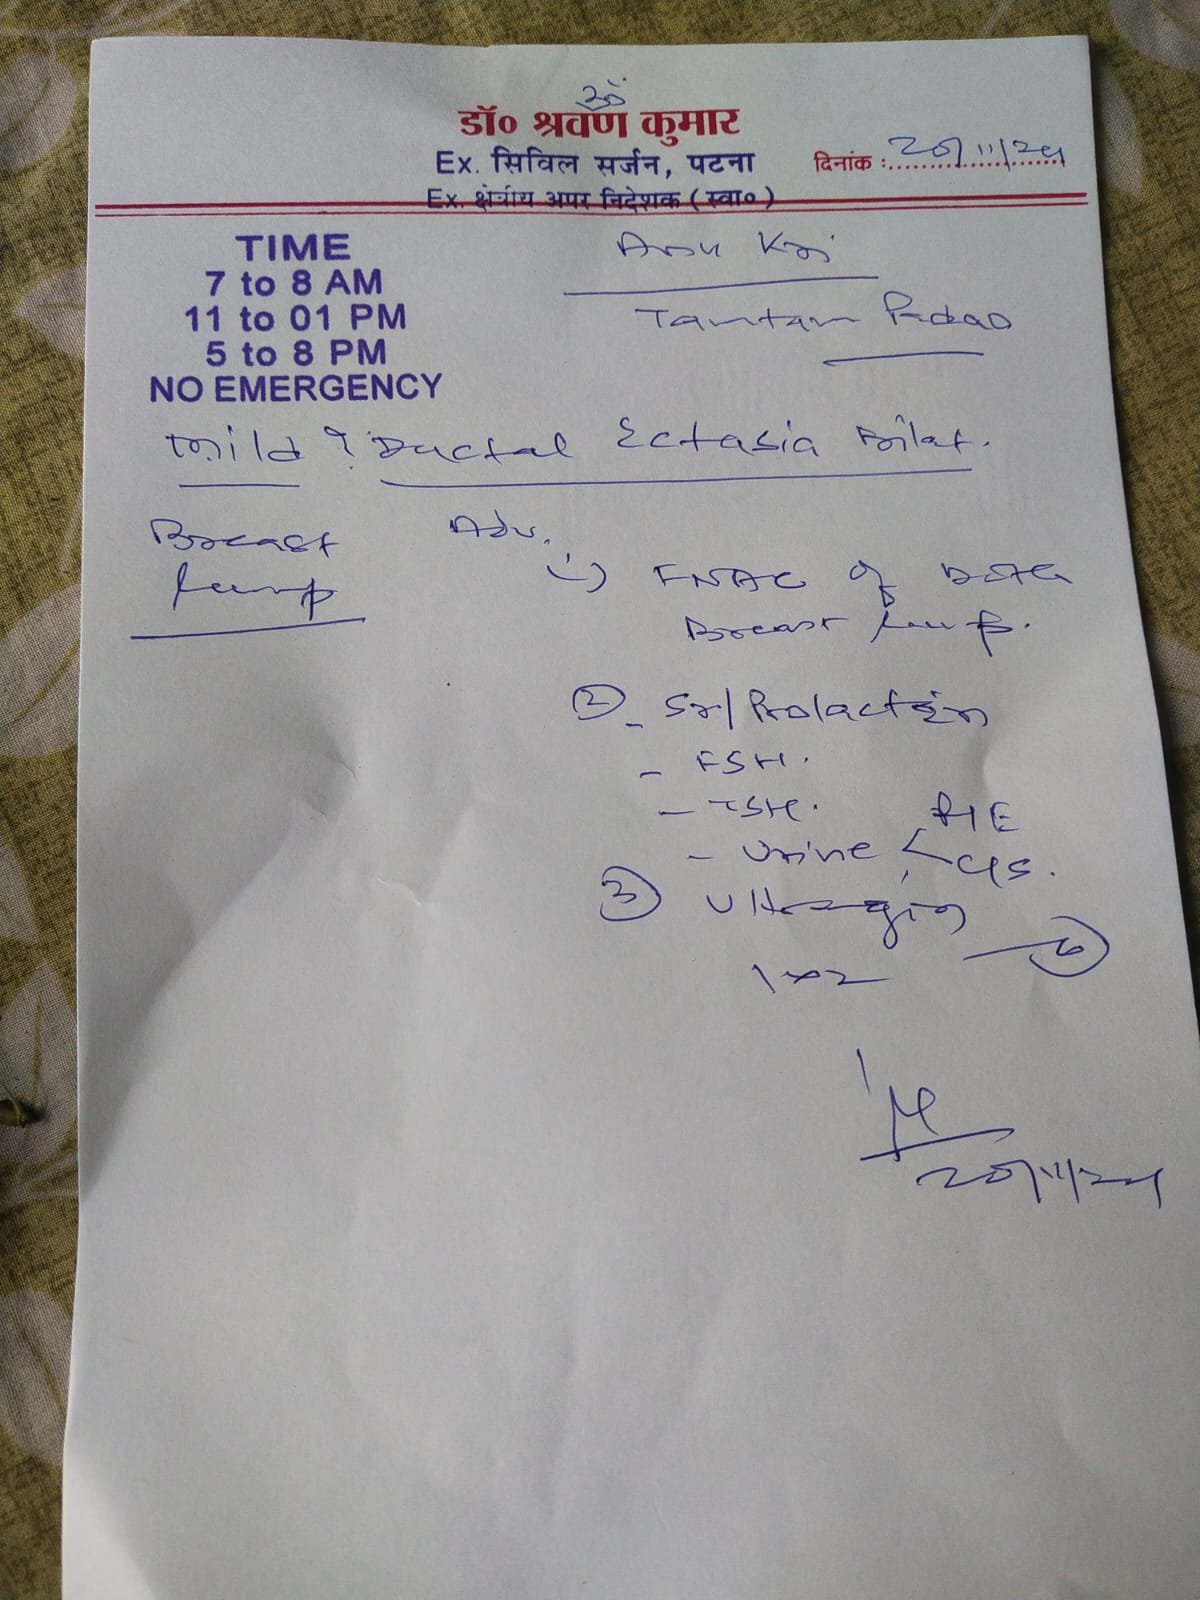 ॐ
डॉ० श्रवण कुमार
Ex. सिविल सर्जन, पटना
दिनांक : 20/11/24
Ex. क्षेत्रीय अपर निदेशक ( स्वा० )
TIME
7 to 8 AM
11 to 01 PM
5 to 8 PM
NO EMERGENCY
Mild ? Ductal Ectasia Bilat.
Breast
lump
Adv.
1) FNAC of
Breast lump.
② - Sr/Prolactin
- FSH.
- TSH.
- Urine < R/E
C/S.
③
20/11/24